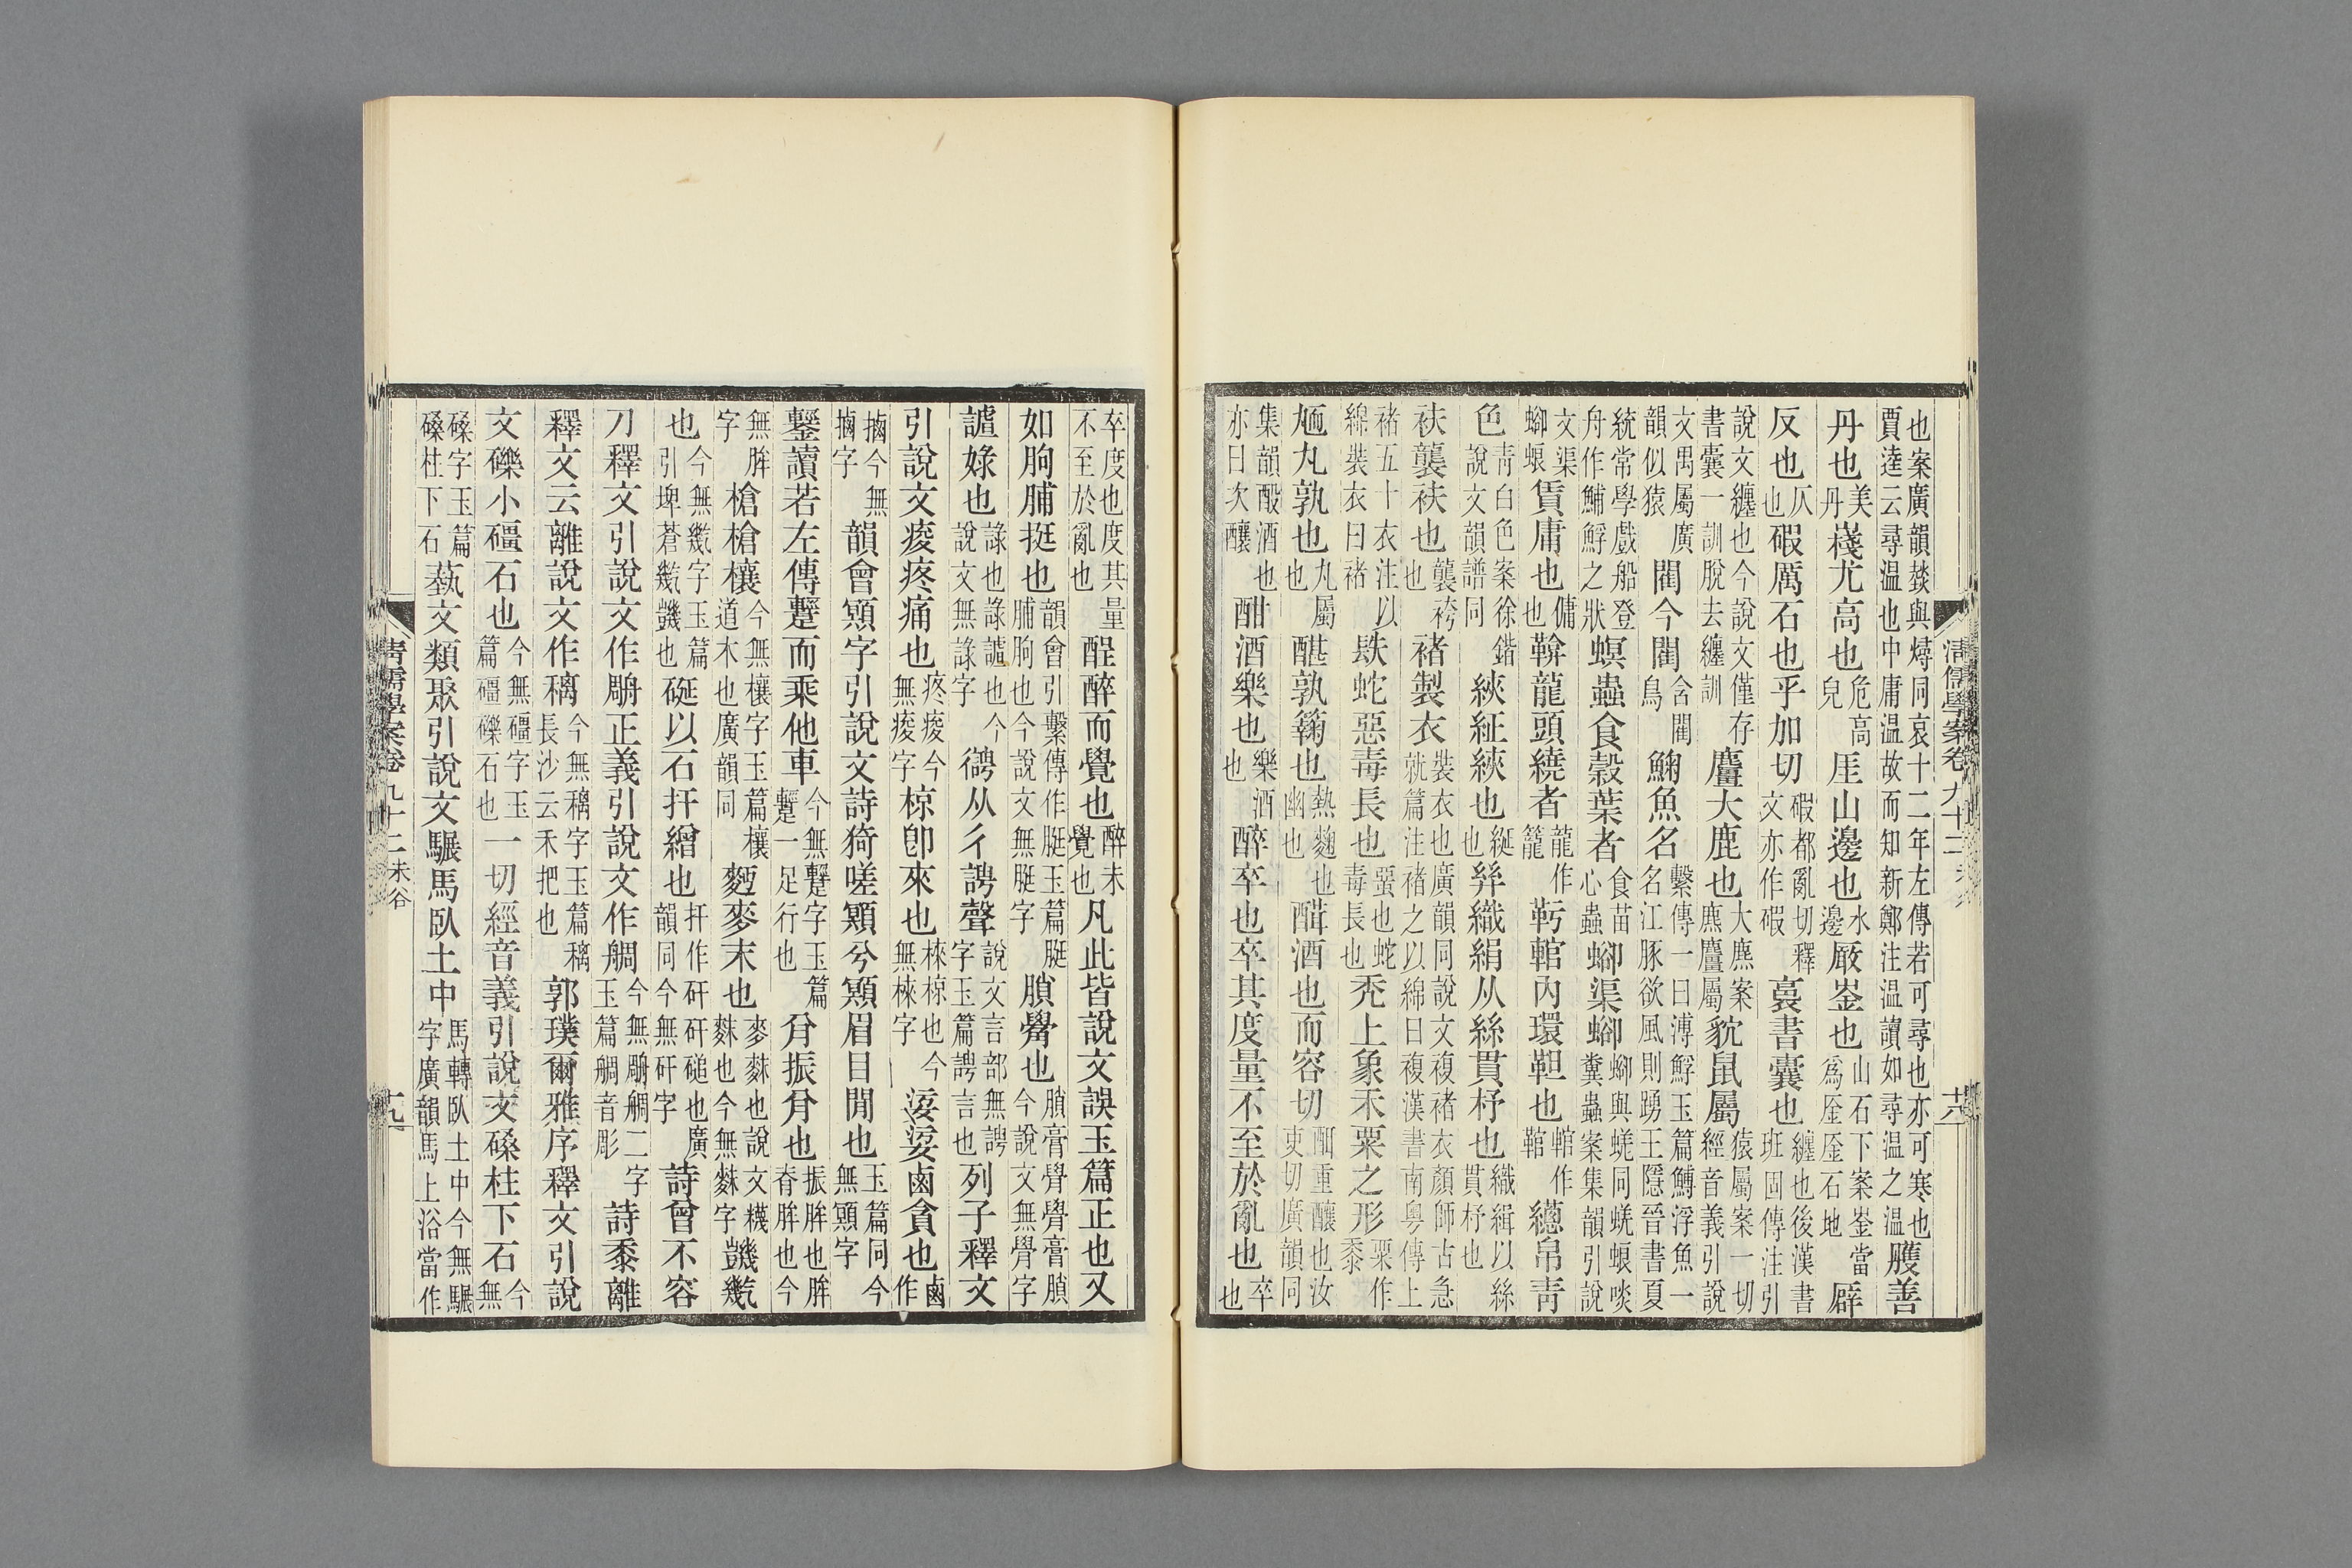 清儒學案卷九十二 未谷 十八
也案廣韻燅與燖同哀十二年左傳若可尋也亦可寒也賈逵云尋溫也中庸溫故而知新鄭注溫讀如尋溫之溫雘善
丹也美丹嶘尤高也危高兒厓山邊也水邊厰崟也山石下案崟當爲厜厜石地
反也仄也碬厲石也乎加切碬都亂切釋文亦作碬裛書囊也纏也後漢書班固傳注引
說文纏也今說文僅存書囊一訓脫去纏訓麠大鹿也大麃案麃麠屬貁鼠屬猿屬案一切經音義引說
文禺屬廣韻似猿閵今閵含閵鳥鮈魚名繫傳一曰溥䱐玉篇鱄浮魚一名江豚欲風則踴王隱晉書夏
統常學戲船登舟作鯆䱐之狀螟蟲食穀葉者食苗心蟲蝍渠蝍蝍與蜣同蜣蜋啖糞蟲案集韻引說
文渠蝍蜋賃庸也傭也龓龍頭繞者龍作籠靬輨內環靼也輨作鞙繱帛青
色青白色案徐鍇說文韻譜同綊紝綊也綖也絣織絹从絲貫杼也織緝以絲貫杼也
袂襲袂也襲袴也褚製衣裝衣也廣韻同說文複褚衣顏師古急就篇注褚之以綿曰複漢書南粵傳上
褚五十衣注以綿裝衣曰褚镻蛇惡毒長也蝁也蛇毒長也禿上象禾粟之形粟作黍
𡖓丸孰也丸屬也醓孰籟也熱麴也幽也醋酒也而容切酣重釀也汝吏切廣韻同
集韻酘酒也亦曰次釀酣酒樂也樂酒也醉卒也卒其度量不至於亂也卒也
卒度也度其量不至於亂也酲醉而覺也醉未覺也凡此皆說文誤玉篇正也又
如朐脯挺也韻會引繫傳作脡玉篇脡脯朐也今說文無脡字䐈臋也䐈膏臋臋膏䐈今說文無臋字
謯娽也諑也諑謯也今說文無諑字𢕟从彳謣聲說文言部無謣字玉篇謣言也列子釋文
引說文痠疼痛也疼痠今無痠字椋卽來也棶椋也今無棶字㛐㛐鹵貪也鹵作
㨯今無㨯字韻會顠字引說文詩猗嗟顠兮顠眉目閒也玉篇同今無顠字
鏨讀若左傳躄而乘他車今無躄字玉篇躄一足行也㑞振㑞也振䏌也䏌脊䏌也今
無䏌字槍槍欀今無欀字玉篇欀道木也廣韻同麪麥末也麥䴽也說文䴽䴽也今無䴽字䜱汽
也今無䜱字玉篇引埤蒼䜱䜱也硟以石扞繒也扞作硏硏碪也廣韻同今無硏字詩曾不容
刀釋文引說文作𦩍正義引說文作䑠今無𦩍䑠二字玉篇䑠音彫詩黍離
釋文云離說文作稿今無稿字玉篇稿長沙云禾把也郭璞爾雅序釋文引說
文礫小礓石也今無礓字玉篇礓礫石也一切經音義引說文磉柱下石今無
磉字玉篇磉柱下石藝文類聚引說文驏馬臥土中馬轉臥土中今無驏字廣韻馬上浴當作
清儒學案卷九十二 未谷 十九